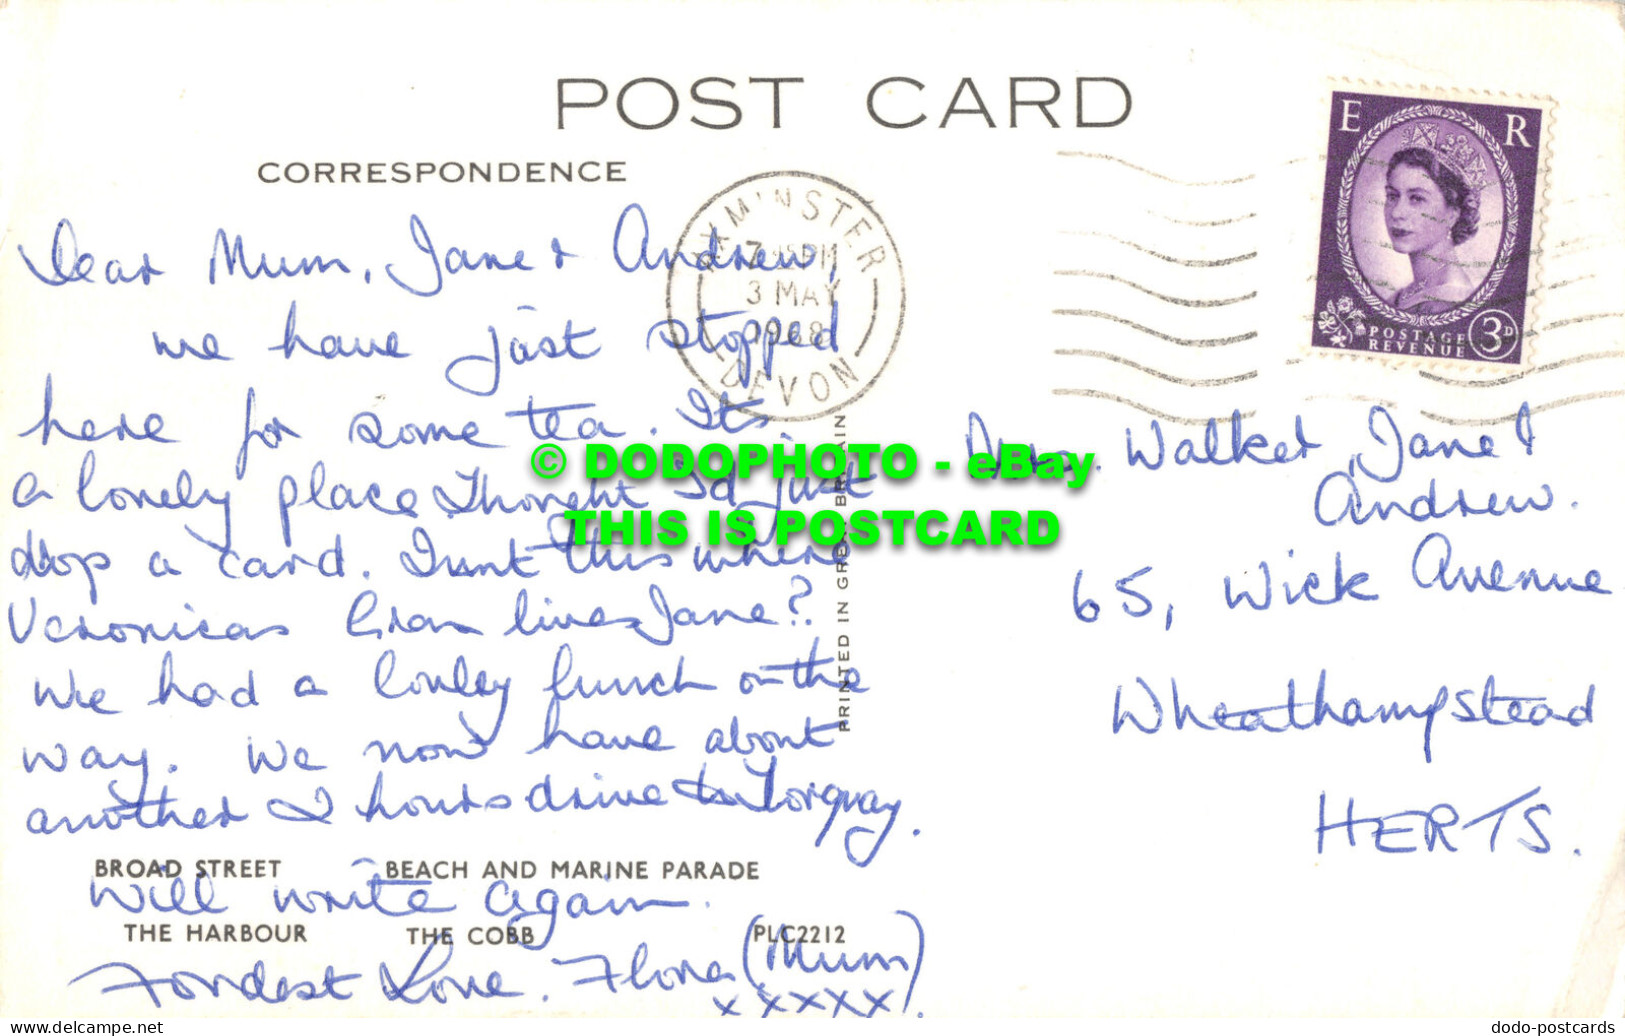 POST CARD
CORRESPONDENCE
AXMINSTER
7 15 PM
3 MAY
1968
DEVON
E R
POSTAGE
REVENUE
3D
Dear Mum, Jane & Andrew,
we have just stopped
here for some tea. Its
a lonely place. Thought I'd just
drop a card. Isn't this where
Veronicas Gran lives Jane?
We had a lonley lunch on the
way. We now have about
another 2 hours drive to Torquay.
Will write again.
Fondest Love. Flora (Mum)
x x x x x x
BROAD STREET BEACH AND MARINE PARADE
THE HARBOUR THE COBB PLC2212
PRINTED IN GREAT BRITAIN
Mrs. Walker, Jane &
Andrew.
65, Wick Avenue
Wheathampstead
HERTS.
© DODOPHOTO - eBay
THIS IS POSTCARD
Copyright © 2023 delcampe.net
dodo-postcards